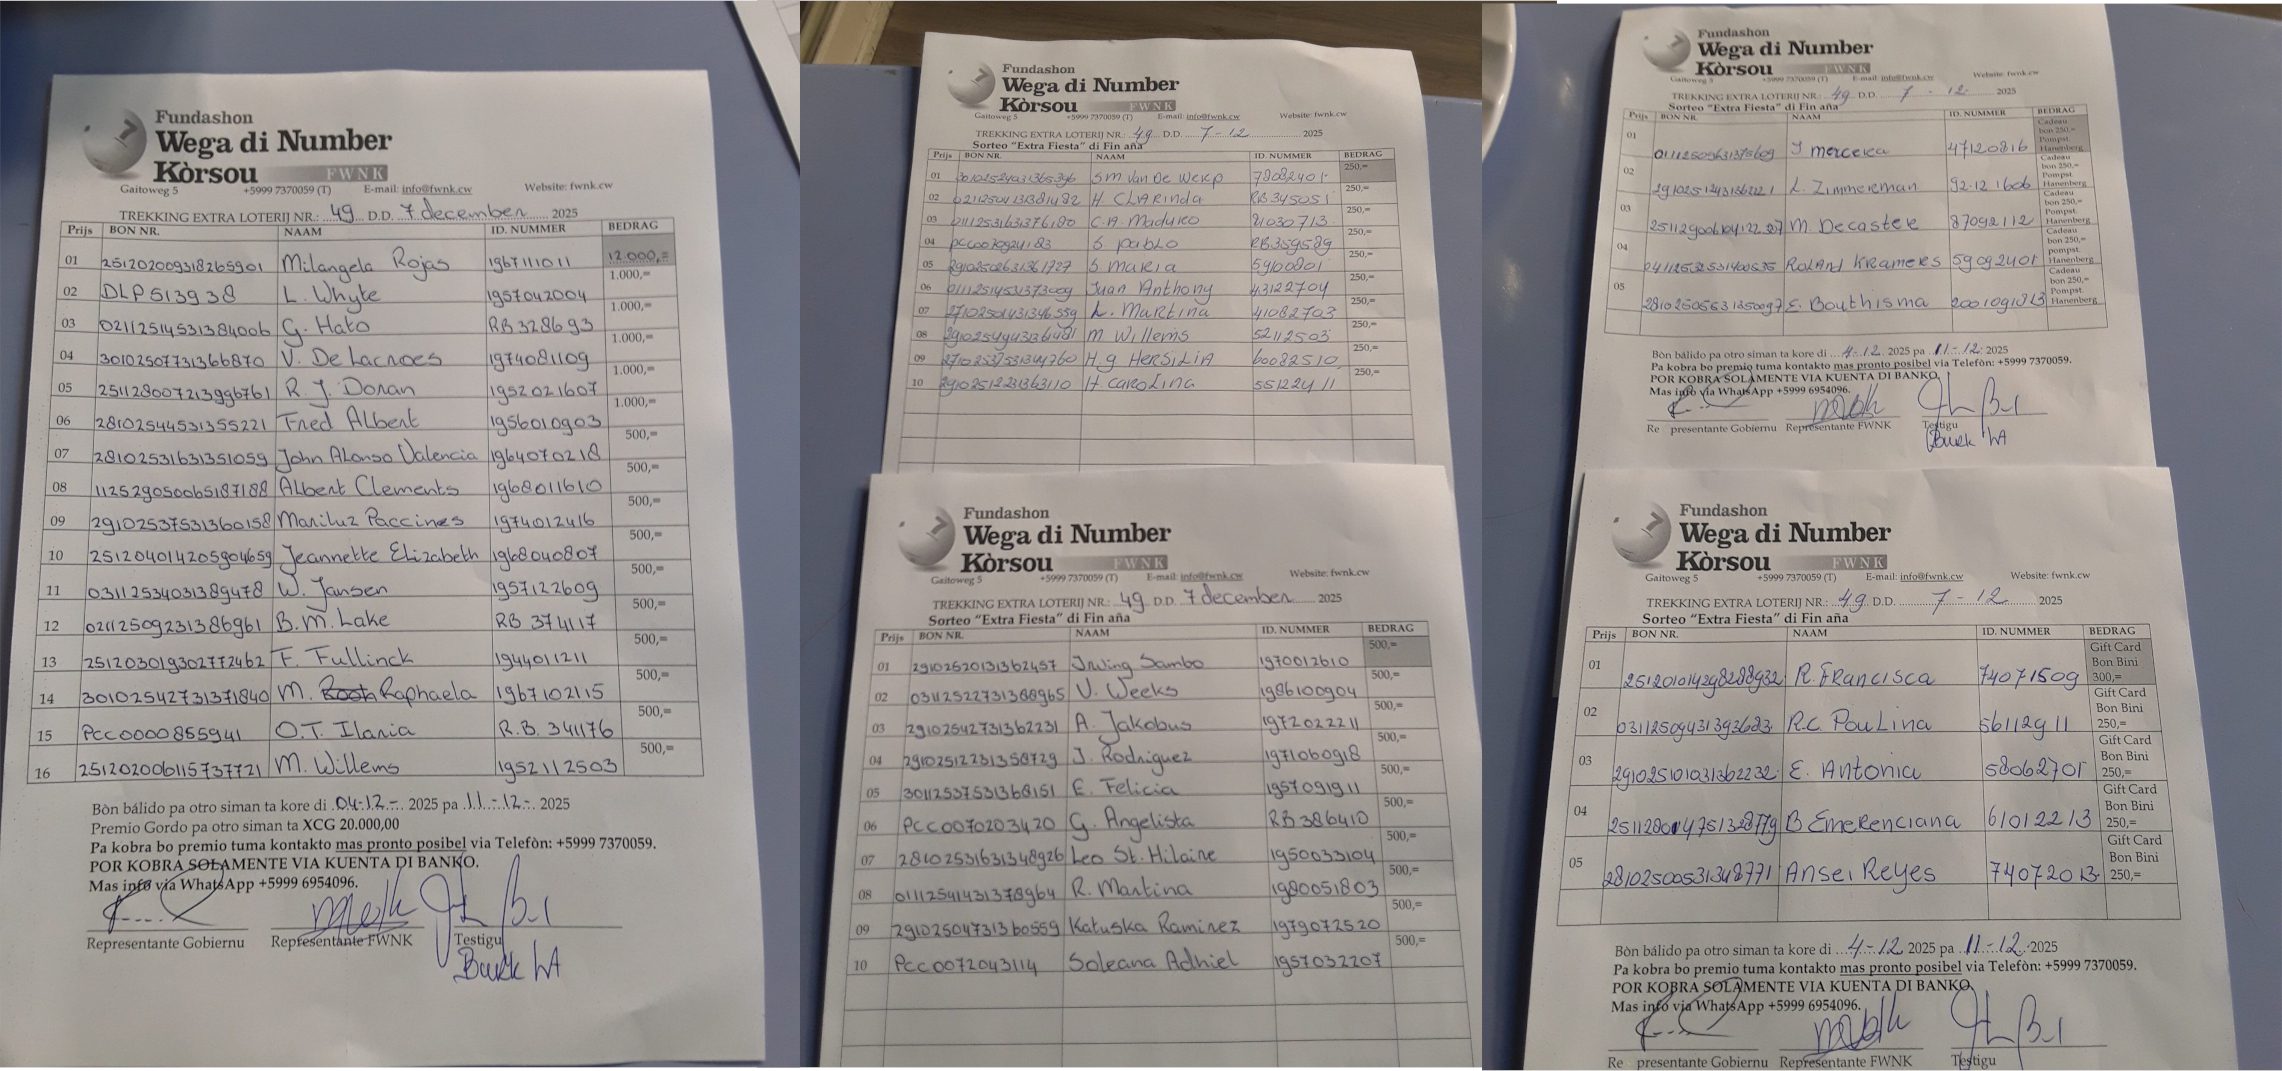 Fundashon
Wega di Number
Kòrsou FWNK
Gaitoweg 5 +5999 7370059 (T) E-mail: info@fwnk.cw Website: fwnk.cw
TREKKING EXTRA LOTERIJ NR.: 49 D.D. 7 december 2025
Prijs BON NR. NAAM ID. NUMMER BEDRAG
01 251202009318265901 Milangela Rojas 1967111011 12.000,=
02 DLP513938 L. Whyte 1957042004 1.000,=
03 02112514531384006 G. Hato RB 328693 1.000,=
04 30102507731366870 V. De Lacroes 1974081109 1.000,=
05 251128007213996761 R. J. Doran 1952021607 1.000,=
06 28102544531355221 Fred Albert 1956010903 1.000,=
07 28102531631351059 John Alonso Valencia 1964070218 500,=
08 112529050065187188 Albert Clements 1968011610 500,=
09 29102537531360158 Mariluz Paccines 1974012416 500,=
10 251204014205904659 Jeannette Elizabeth 1968040807 500,=
11 03112534031389478 W. Jansen 1957122609 500,=
12 02112509231386961 B.M. Lake RB 374117 500,=
13 251203019302772462 F. Fullinck 1944011211 500,=
14 30102542731371840 M. Raphaela 1967102115 500,=
15 PCC0000855941 O.T. Ilaria R.B. 341176 500,=
16 251202006115737721 M. Willems 1952112503 500,=
Bòn bálido pa otro siman ta kore di 04-12-. 2025 pa 11.-12-. 2025
Premio Gordo pa otro siman ta XCG 20.000,00
Pa kobra bo premio tuma kontakto mas pronto posibel via Telefòn: +5999 7370059.
POR KOBRA SOLAMENTE VIA KUENTA DI BANKO.
Mas info via WhatsApp +5999 6954096.
Representante Gobiernu Representante FWNK Testigu
Fundashon
Wega di Number
Kòrsou FWNK
Gaitoweg 5 +5999 7370059 (T) E-mail: info@fwnk.cw Website: fwnk.cw
TREKKING EXTRA LOTERIJ NR.: 49 D.D. 7-12 2025
Sorteo "Extra Fiesta" di Fin aña
Prijs BON NR. NAAM ID. NUMMER BEDRAG
01 30102524031365396 SM Van De Werp 78082401 250,=
02 02112504131381482 H. CLARinda RB 345051 250,=
03 01112531631376180 C.A. Maduro 81030713 250,=
04 PCC0070924183 S. Pablo RB 359589 250,=
05 29102502631361727 S. Maria 59100801 250,=
06 01112514531373009 Juan Anthony 43122704 250,=
07 27102501431346559 L. Martina 41082703 250,=
08 M Willems 52112503 250,=
09 27102537531344760 H.g HERSILIA 60082510 250,=
10 29102512231363110 H. CAROLina 55122411 250,=
Fundashon
Wega di Number
Kòrsou FWNK
Gaitoweg 5 +5999 7370059 (T) E-mail: info@fwnk.cw Website: fwnk.cw
TREKKING EXTRA LOTERIJ NR.: 49 D.D. 7 december 2025
Sorteo "Extra Fiesta" di Fin aña
Prijs BON NR. NAAM ID. NUMMER BEDRAG
01 29102520131362457 Irwing Sambo 1970012610 500,=
02 03112522731388965 V. Weeks 1986100904 500,=
03 29102542731362231 A. Jakobus 1972022211 500,=
04 29102512231358729 J. Rodriguez 1971060918 500,=
05 30112537531368151 E. Felicia 1957091911 500,=
06 PCC0070203420 G. Angelista RB 386410 500,=
07 28102531631348926 Leo St. Hilaire 1950033104 500,=
08 01112541431378964 R. Martina 1980051803 500,=
09 29102504731360559 Katuska Ramirez 1979072520 500,=
10 PCC0072043114 Soleana Adhiel 1957032207 500,=
Fundashon
Wega di Number
Kòrsou FWNK
Gaitoweg 5 +5999 7370059 (T) E-mail: info@fwnk.cw Website: fwnk.cw
TREKKING EXTRA LOTERIJ NR.: 49 D.D. 7 - 12 2025
Sorteo "Extra Fiesta" di Fin aña
Prijs BON NR. NAAM ID. NUMMER BEDRAG
01 01112509631375609 J mercera 47120816 Cadeau bon 250,= Pompst. Hanenberg
02 29102512431362221 L. Zimmerman 92121606 Cadeau bon 250,= Pompst. Hanenberg
03 M. Decaster 87092112 Cadeau bon 250,= Pompst. Hanenberg
04 ROLAnd KRAMERS 59092401 Cadeau bon 250,= Pompst. Hanenberg
05 28102505631350097 E. Bouthisma 2001091813 Cadeau bon 250,= Pompst. Hanenberg
Bòn bálido pa otro siman ta kore di 4-12 2025 pa 11-12 2025
Pa kobra bo premio tuma kontakto mas pronto posibel via Telefòn: +5999 7370059.
POR KOBRA SOLAMENTE VIA KUENTA DI BANKO
Mas info via WhatsApp +5999 6954096.
Re presentante Gobiernu Representante FWNK Testigu
Fundashon
Wega di Number
Kòrsou FWNK
Gaitoweg 5 +5999 7370059 (T) E-mail: info@fwnk.cw Website: fwnk.cw
TREKKING EXTRA LOTERIJ NR.: 49 D.D. 7-12 2025
Sorteo "Extra Fiesta" di Fin aña
Prijs BON NR. NAAM ID. NUMMER BEDRAG
01 251201014298288932 R. FRancisca 74071509 Gift Card Bon Bini 300,=
02 03112509431393623 R.C. PouLina 56112911 Gift Card Bon Bini 250,=
03 291025101031362232 E. Antonia 58062701 Gift Card Bon Bini 250,=
04 B Emerenciana 61012213 Gift Card Bon Bini 250,=
05 28102500531348771 Ansei Reyes 74072013 Gift Card Bon Bini 250,=
Bòn bálido pa otro siman ta kore di 4-12 2025 pa 11-12 2025
Pa kobra bo premio tuma kontakto mas pronto posibel via Telefòn: +5999 7370059.
POR KOBRA SOLAMENTE VIA KUENTA DI BANKO
Mas info via WhatsApp +5999 6954096.
Re presentante Gobiernu Representante FWNK Testigu